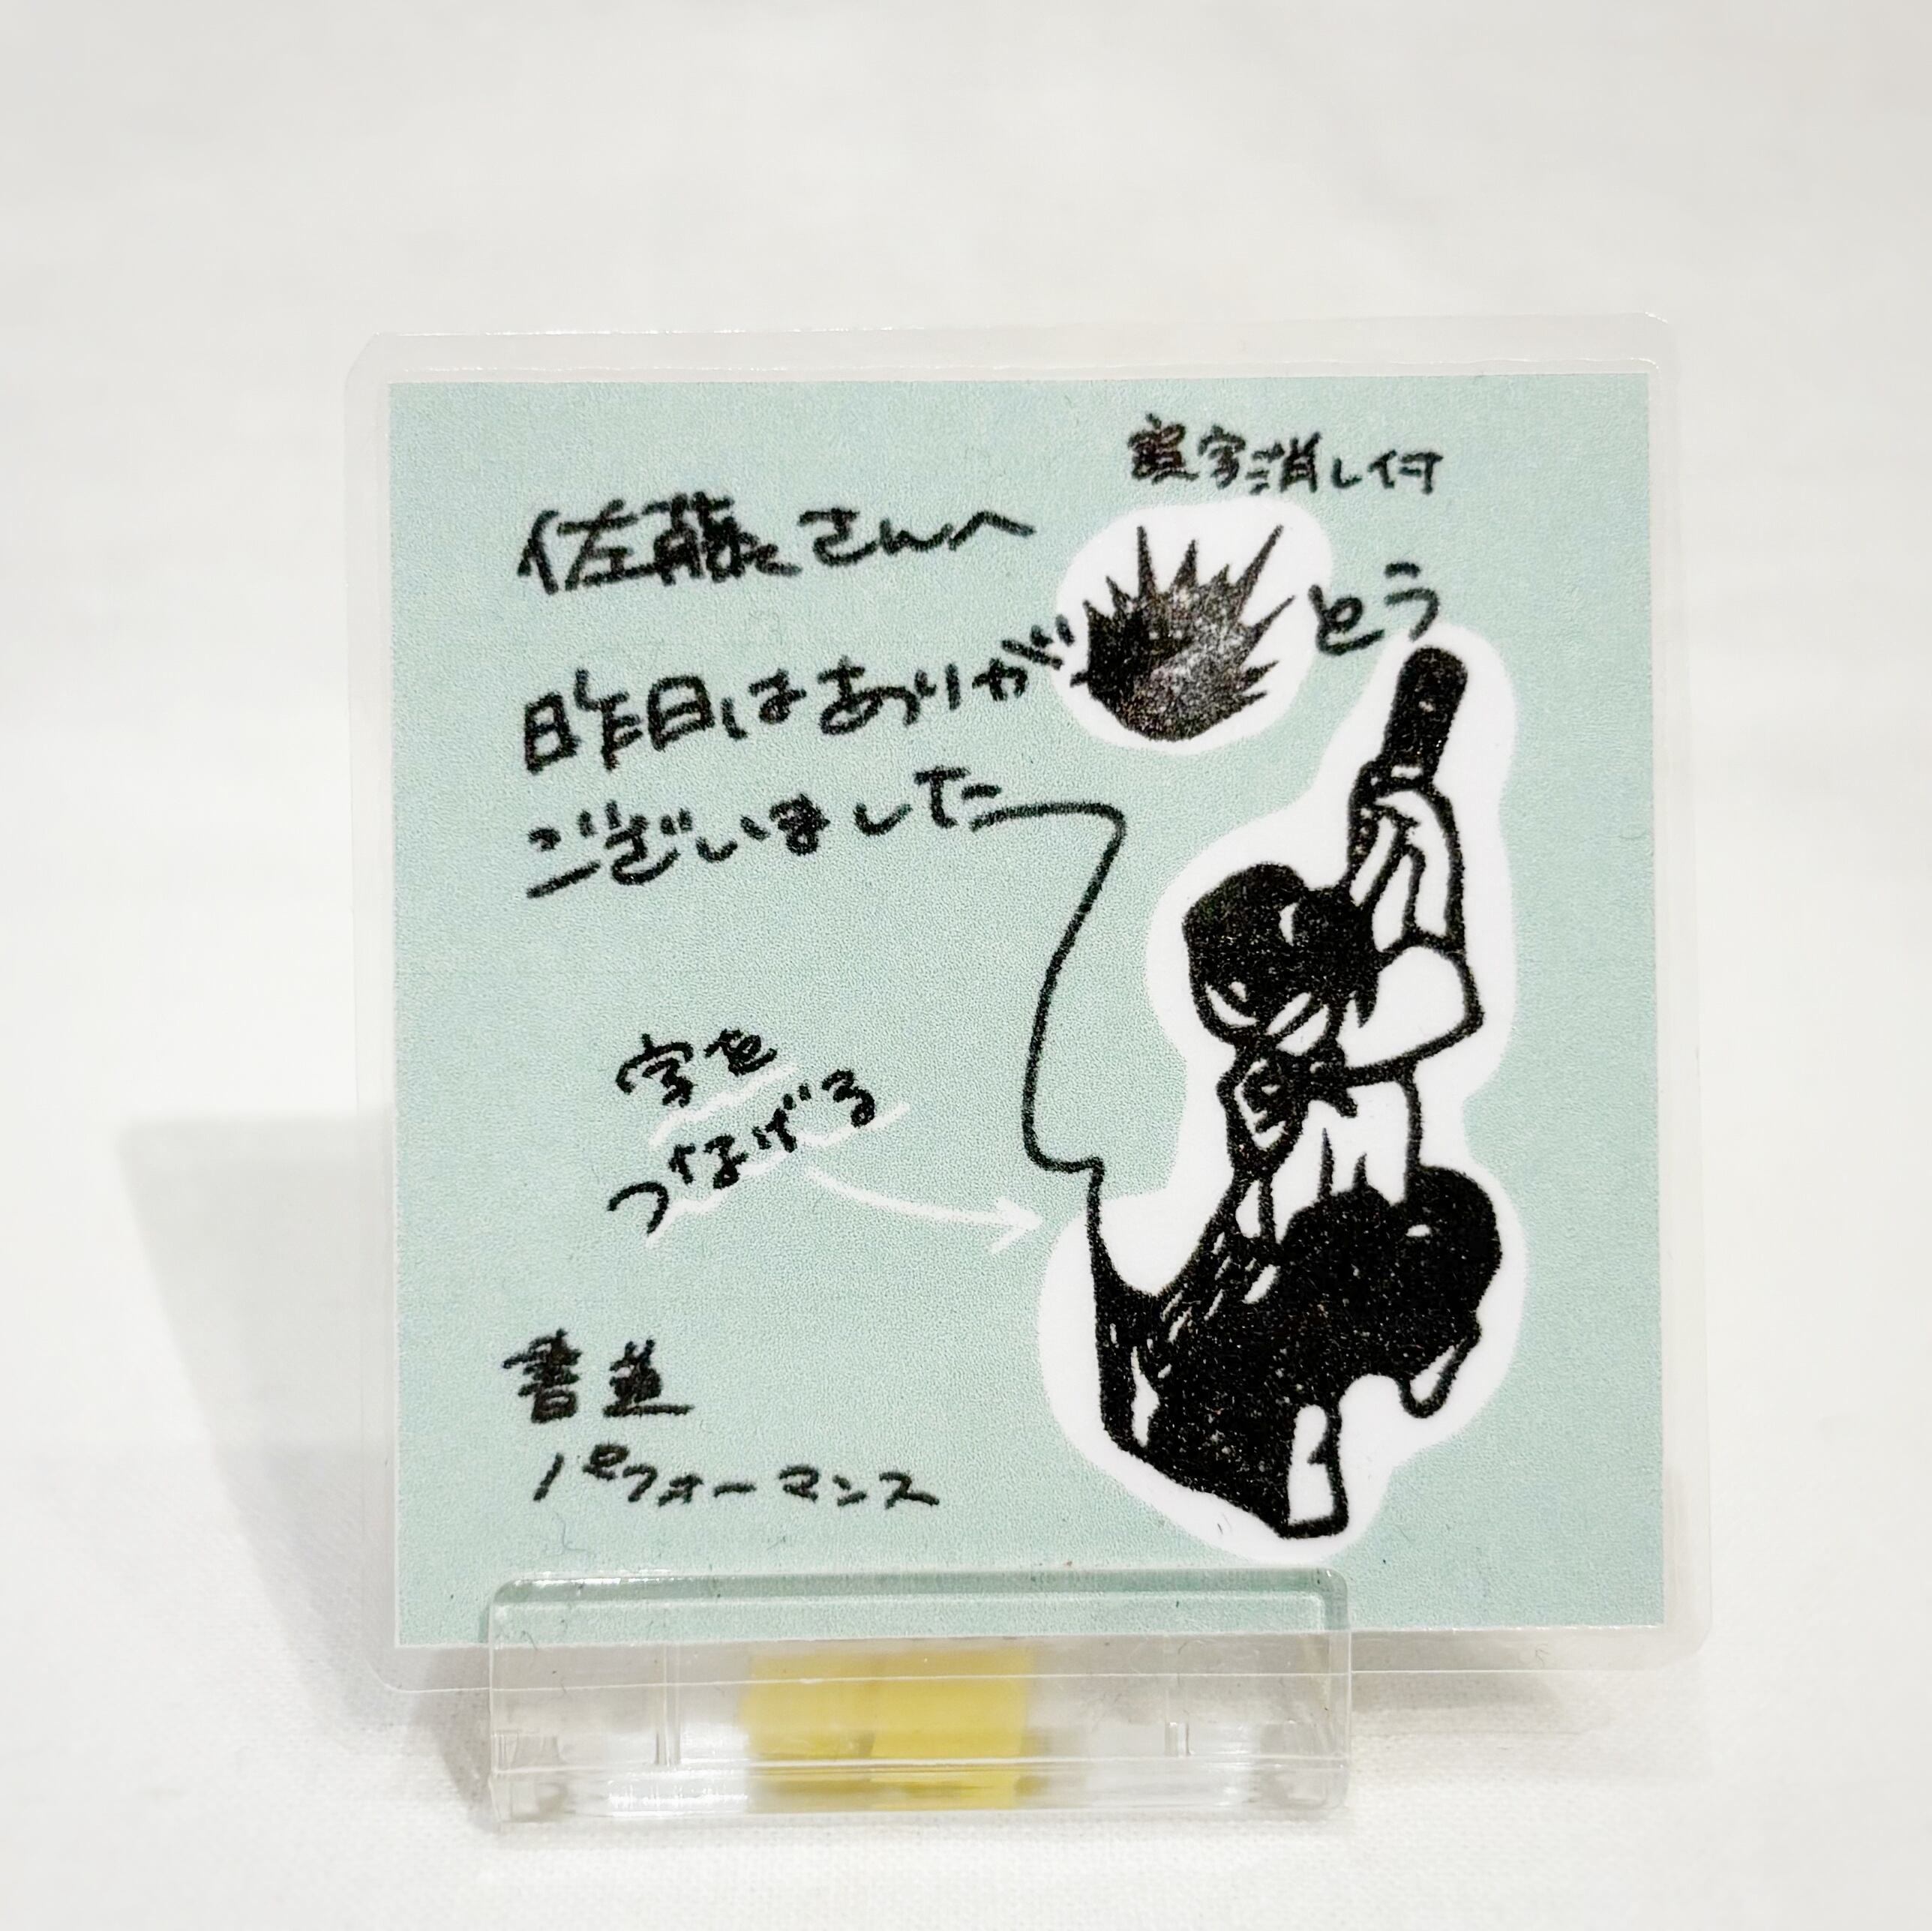 誤字消し付
佐藤さんへ
昨日はありが とう
ございました
字を
つなげる
書道
パフォーマンス